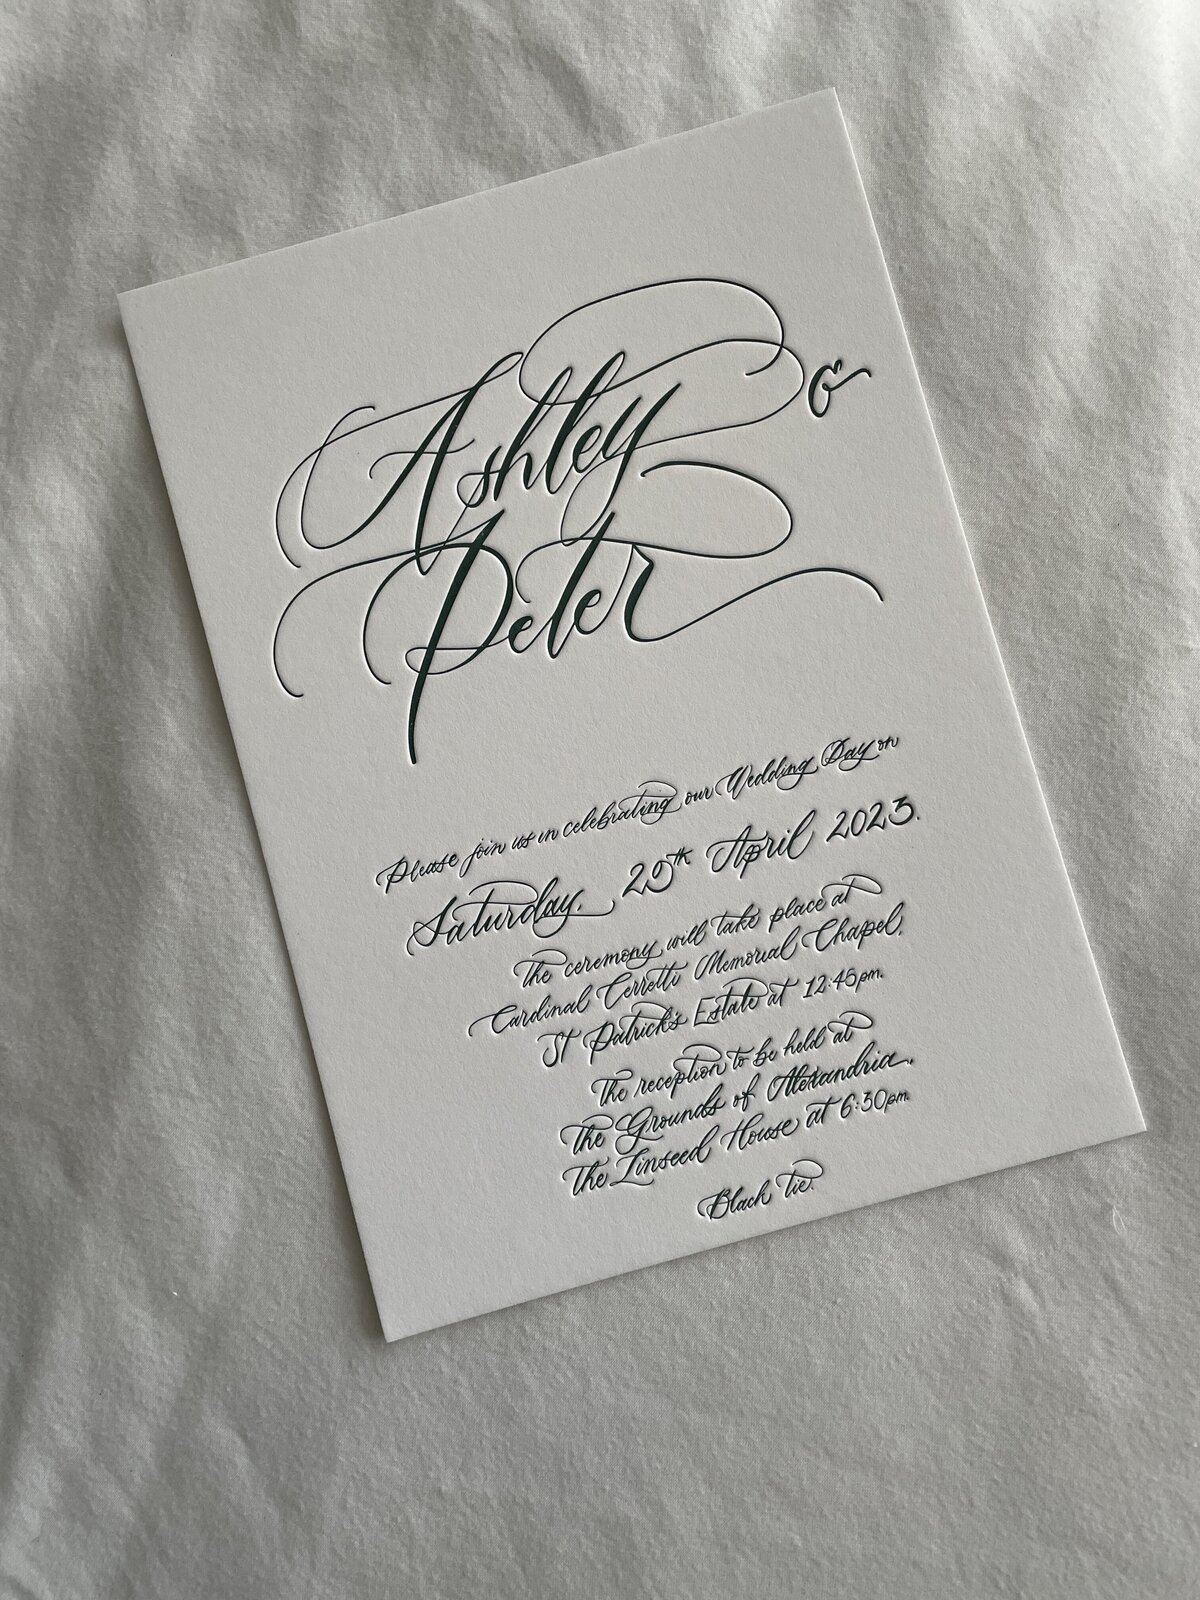 Ashley &
Peter
Please join us in celebrating our Wedding Day on
Saturday, 29th April 2023.
The ceremony will take place at
Cardinal Cerretti Memorial Chapel,
St Patrick's Estate at 12:45pm.
The reception to be held at
the Grounds of Alexandria,
The Linseed House at 6:30pm.
Black Tie.